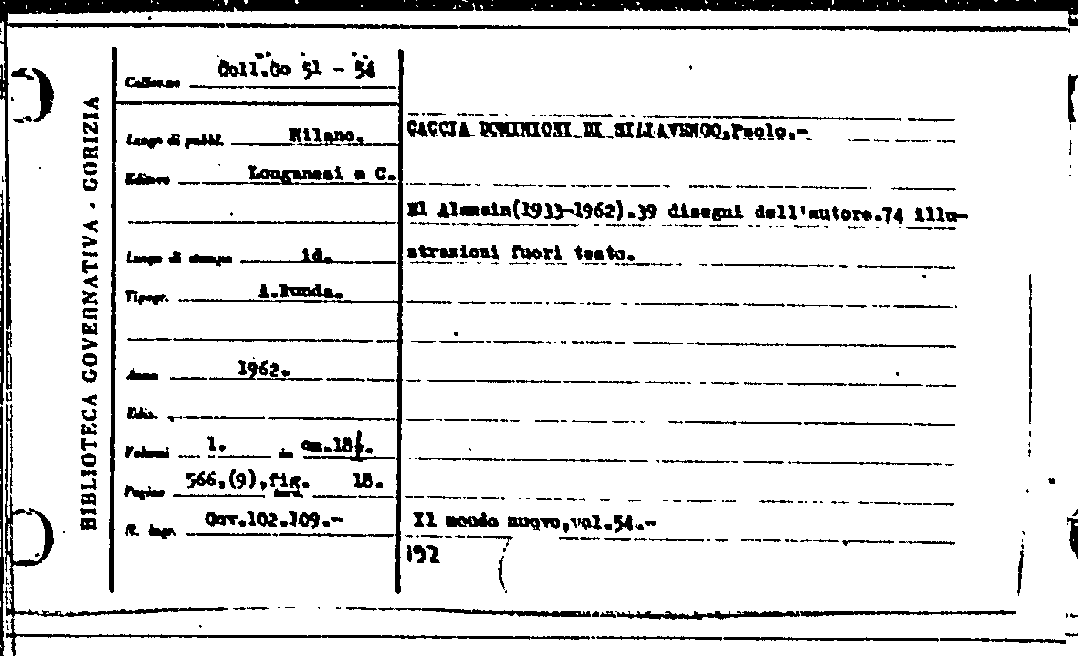 BIBLIOTECA GOVERNATIVA - GORIZIA
Colloc.ne Coll.Go 51 - 54
Luogo di pubbl. Milano.
Editore Longanesi e C.
Luogo di stampa id.
Tipogr. A.Ronda.
Anno 1962.
Ediz.
Volumi 1. in cm.18½.
Pagine 566,(9),fig. 18.
N. ingr. Gov.102.109.-
CACCIA DOMINIONI DI SILLAVENGO,Paolo.-
El Alamein(1933-1962).39 disegni dell'autore.74 illu-
strazioni fuori testo.
Il mondo nuovo,vol.54.-
192